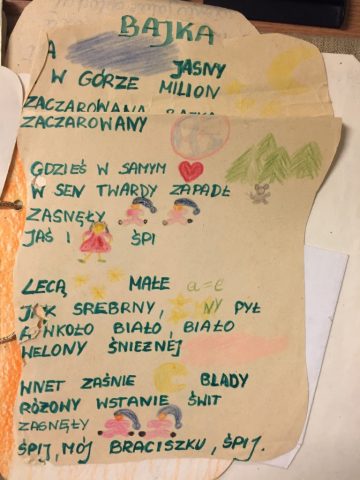 BAJKA
A JASNY
W GÓRZE MILION
ZACZAROWANA BAJKA
ZACZAROWANY
GDZIEŚ W SAMYM
W SEN TWARDY ZAPADŁ
ZASNĘŁY
JAŚ I ŚPI
LECĄ MAŁE a=e
JAK SREBRNY, NY PYŁ
WOKOŁO BIAŁO, BIAŁO
WELONY ŚNIEŻNEJ
WNET ZAŚNIE BLADY
RÓŻOWY WSTANIE ŚWIT
ZASNĘŁY
ŚPIJ, MÓJ BRACISZKU, ŚPIJ.